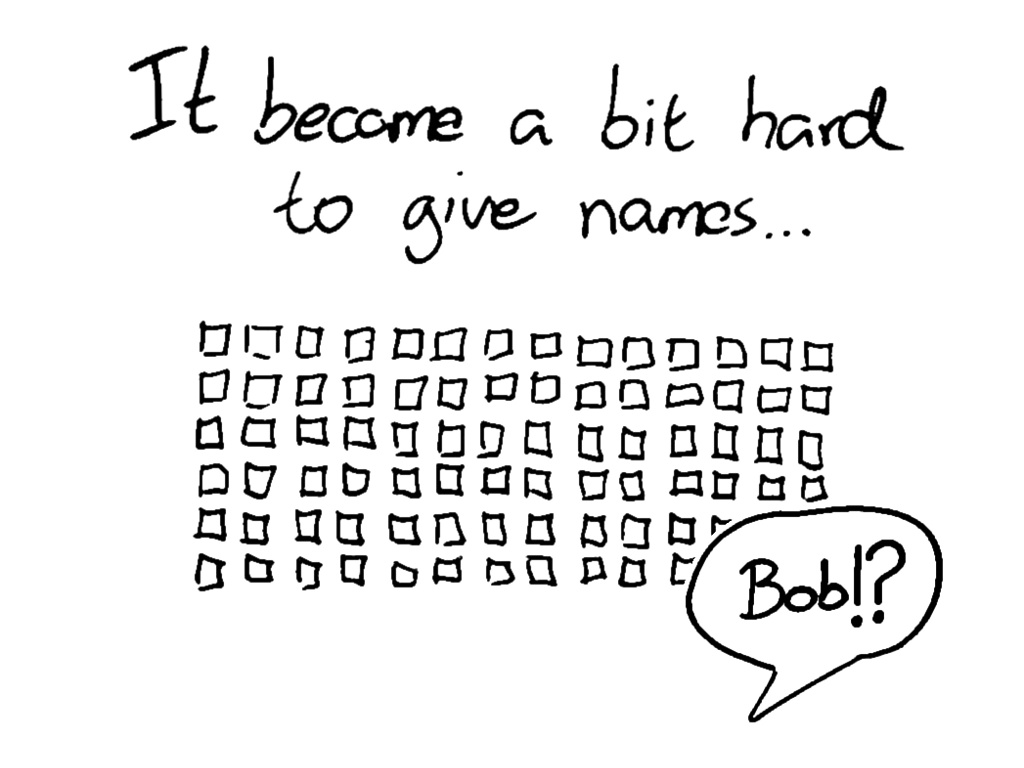 It became a bit hard
to give names...
Bob!?